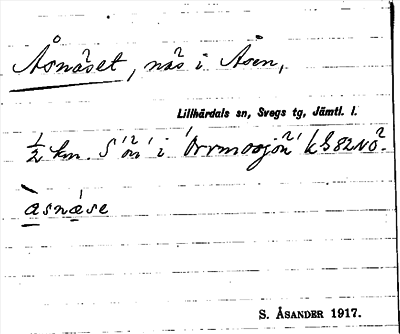 Åsnäset, näs i Åsen,
Lillhärdals sn, Svegs tg, Jämtl. l.
½ km. S om i Orrmosjön
àsnæ̀se
S. ÅSANDER 1917.